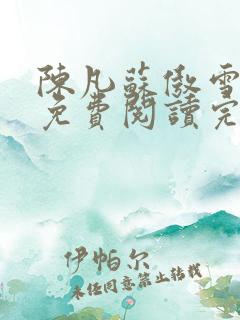 陳凡蘇傲雪
免費閱讀完
伊帕尔
未经同意禁止转载